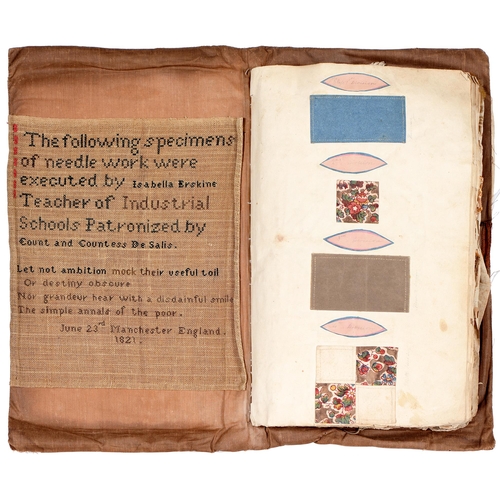 The following specimens
of needle work were
executed by Isabella Erskine
Teacher of Industrial
Schools Patronized by
Count and Countess De Salis.
Let not ambition mock their useful toil
Or destiny obscure
Nor grandeur hear with a disdainful smile
The simple annals of the poor.
June 23rd Manchester England.
1821.